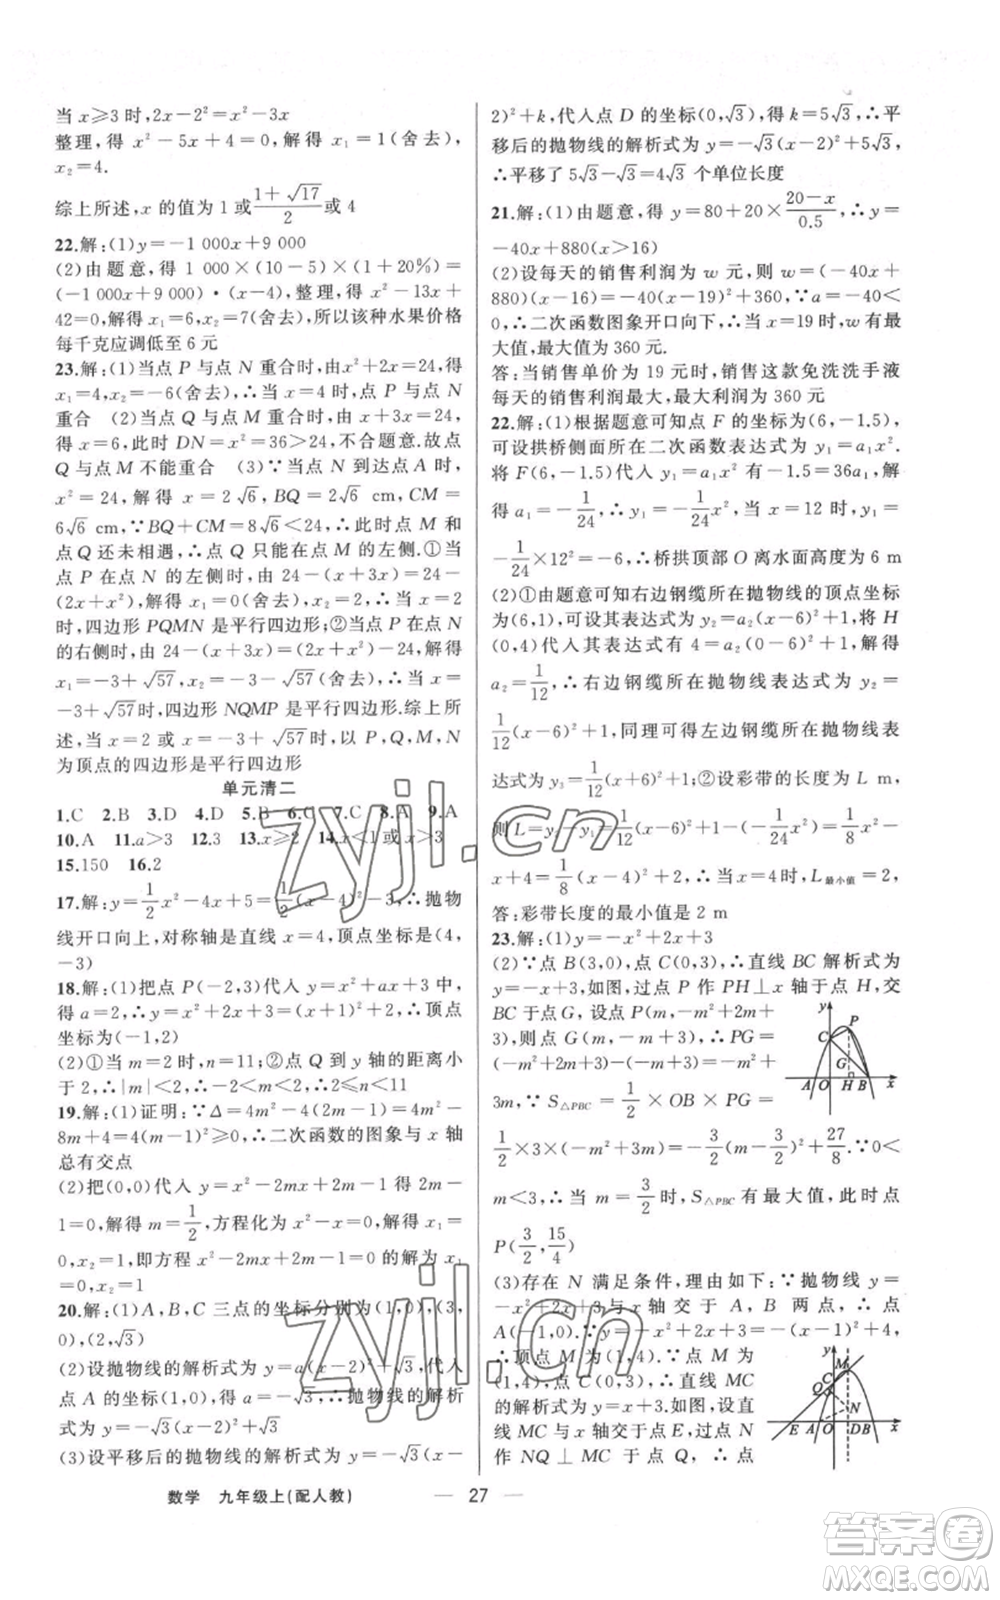 当 x≥3 时,2x-2²=x²-3x
整理,得 x²-5x+4=0,解得 x₁=1(舍去),
x₂=4.
综上所述,x 的值为 1 或(1+√17)/2 或 4
22.解:(1)y=-1 000x+9 000
(2)由题意,得 1 000×(10-5)×(1+20%)=
(-1 000x+9 000)·(x-4),整理,得 x²-13x+
42=0,解得 x₁=6,x₂=7(舍去),所以该种水果价格
每千克应调低至 6 元
23.解:(1)当点 P 与点 N 重合时,由x²+2x=24,得
x₁=4,x₂=-6(舍去),当 x=4 时,点 P 与点 N
重合 (2)当点 Q 与点 M 重合时,由 x+3x=24,
得 x=6,此时 DN=x²=36>24,不合题意.故点
Q 与点 M 不能重合 (3)∵当点 N 到达点 A 时,
x²=24,解得 x=2√6,BQ=2√6 cm,CM=
6√6 cm,∵BQ+CM=8√6<24,∴此时点 M 和
点 Q 还未相遇,∴点 Q 只能在点 M 的左侧.①当
点 P 在点 N 的左侧时,由 24-(x+3x)=24-
(2x+x²),解得 x₁=0(舍去),x₂=2,当 x=2
时,四边形 PQMN 是平行四边形;②当点 P 在点 N
的右侧时,由 24-(x+3x)=(2x+x²)-24,解得
x₁=-3+√57,x₂=-3-√57(舍去),当 x=
-3+√57时,四边形 NQMP 是平行四边形.综上所
述,当 x=2 或 x=-3+√57时,以 P,Q,M,N
为顶点的四边形是平行四边形
单元清二
1.C 2.B 3.D 4.D 5.B 6.C 7.C 8.A 9.A
10.A 11.a>3 12.3 13.x≥2 14.x<1 或 x>3
15.150 16.2
17.解:y=1/2x²-4x+5=1/2(x-4)²-3,∴抛物
线开口向上,对称轴是直线 x=4,顶点坐标是(4,
-3)
18.解:(1)把点 P(-2,3)代入 y=x²+ax+3 中,
得 a=2,∴y=x²+2x+3=(x+1)²+2,∴顶点
坐标为(-1,2)
(2)①当 m=2 时,n=11;②点 Q 到 y 轴的距离小
于 2,∴|m|<2,∴-2<m<2,∴2≤n<11
19.解:(1)证明:∵Δ=4m²-4(2m-1)=4m²-
8m+4=4(m-1)²≥0,∴二次函数的图象与 x 轴
总有交点
(2)把(0,0)代入 y=x²-2mx+2m-1 得 2m-
1=0,解得 m=1/2,方程化为 x²-x=0,解得 x₁=
0,x₂=1,即方程 x²-2mx+2m-1=0 的解为 x₁
=0,x₂=1
20.解:(1)A,B,C 三点的坐标分别为(1,0),(3,
0),(2,√3)
(2)设抛物线的解析式为 y=a(x-2)²+√3,代入
点 A 的坐标(1,0),得 a=-√3,∴抛物线的解析
式为 y=-√3(x-2)²+√3
(3)设平移后的抛物线的解析式为 y=-√3(x-
2)²+k,代入点 D 的坐标(0,√3),得 k=5√3,∴平
移后的抛物线的解析式为 y=-√3(x-2)²+5√3,
∴平移了 5√3-√3=4√3 个单位长度
21.解:(1)由题意,得 y=80+20×(20-x)/0.5,∴y=
-40x+880(x>16)
(2)设每天的销售利润为 w 元,则 w=(-40x+
880)(x-16)=-40(x-19)²+360,∵a=-40<
0,∴二次函数图象开口向下,∴当 x=19 时,w 有最
大值,最大值为 360 元.
答:当销售单价为 19 元时,销售这款免洗洗手液
每天的销售利润最大,最大利润为 360 元
22.解:(1)根据题意可知点 F 的坐标为(6,-1.5),
可设拱桥侧面所在二次函数表达式为 y₁=a₁x².
将 F(6,-1.5)代入 y₁=a₁x² 有-1.5=36a₁,解
得 a₁=-1/24,∴y₁=-1/24x²,当 x=12 时,y₁=
-1/24×12²=-6,∴桥拱顶部 O 离水面高度为 6 m
(2)①由题意可知右边钢缆所在抛物线的顶点坐标
为(6,1),可设其表达式为 y₂=a₂(x-6)²+1,将 H
(0,4)代入其表达式有 4=a₂(0-6)²+1,解得
a₂=1/12,∴右边钢缆所在抛物线表达式为 y₂=
1/12(x-6)²+1,同理可得左边钢缆所在抛物线表
达式为 y₃=1/12(x+6)²+1;②设彩带的长度为 L m,
则 L=y₂-y₁=1/12(x-6)²+1-(-1/24x²)=1/8x²-
x+4=1/8(x-4)²+2,∴当 x=4 时,L最小值=2,
答:彩带长度的最小值是 2 m
23.解:(1)y=-x²+2x+3
(2)∵点 B(3,0),点 C(0,3),∴直线 BC 解析式为
y=-x+3,如图,过点 P 作 PH⊥x 轴于点 H,交
BC 于点 G,设点 P(m,-m²+2m+
3),则点 G(m,-m+3),∴PG=
(-m²+2m+3)-(-m+3)=-m²+
3m,∵S△PBC=1/2×OB×PG=
1/2×3×(-m²+3m)=-3/2(m-3/2)²+27/8.∵0<
m<3,∴当 m=3/2时,S△PBC有最大值,此时点
P(3/2,15/4)
(3)存在 N 满足条件,理由如下:∵抛物线 y=
-x²+2x+3与 x 轴交于 A,B 两点,∴点
A(-1,0).∵y=-x²+2x+3=-(x-1)²+4,
∴顶点 M 为(1,4).∵点 M 为
(1,4),点C(0,3),∴直线 MC
的解析式为y=x+3.如图,设直
线 MC与x轴交于点E,过点N
作 NQ⊥MC 于点 Q,
y
P
C
G
A O H B x
y
M
C
Q
N
E A O D B x
数学 九年级上(配人教)
— 27 —
zyjl.cn
zyjl.cn
答案卷
MXQE.COM